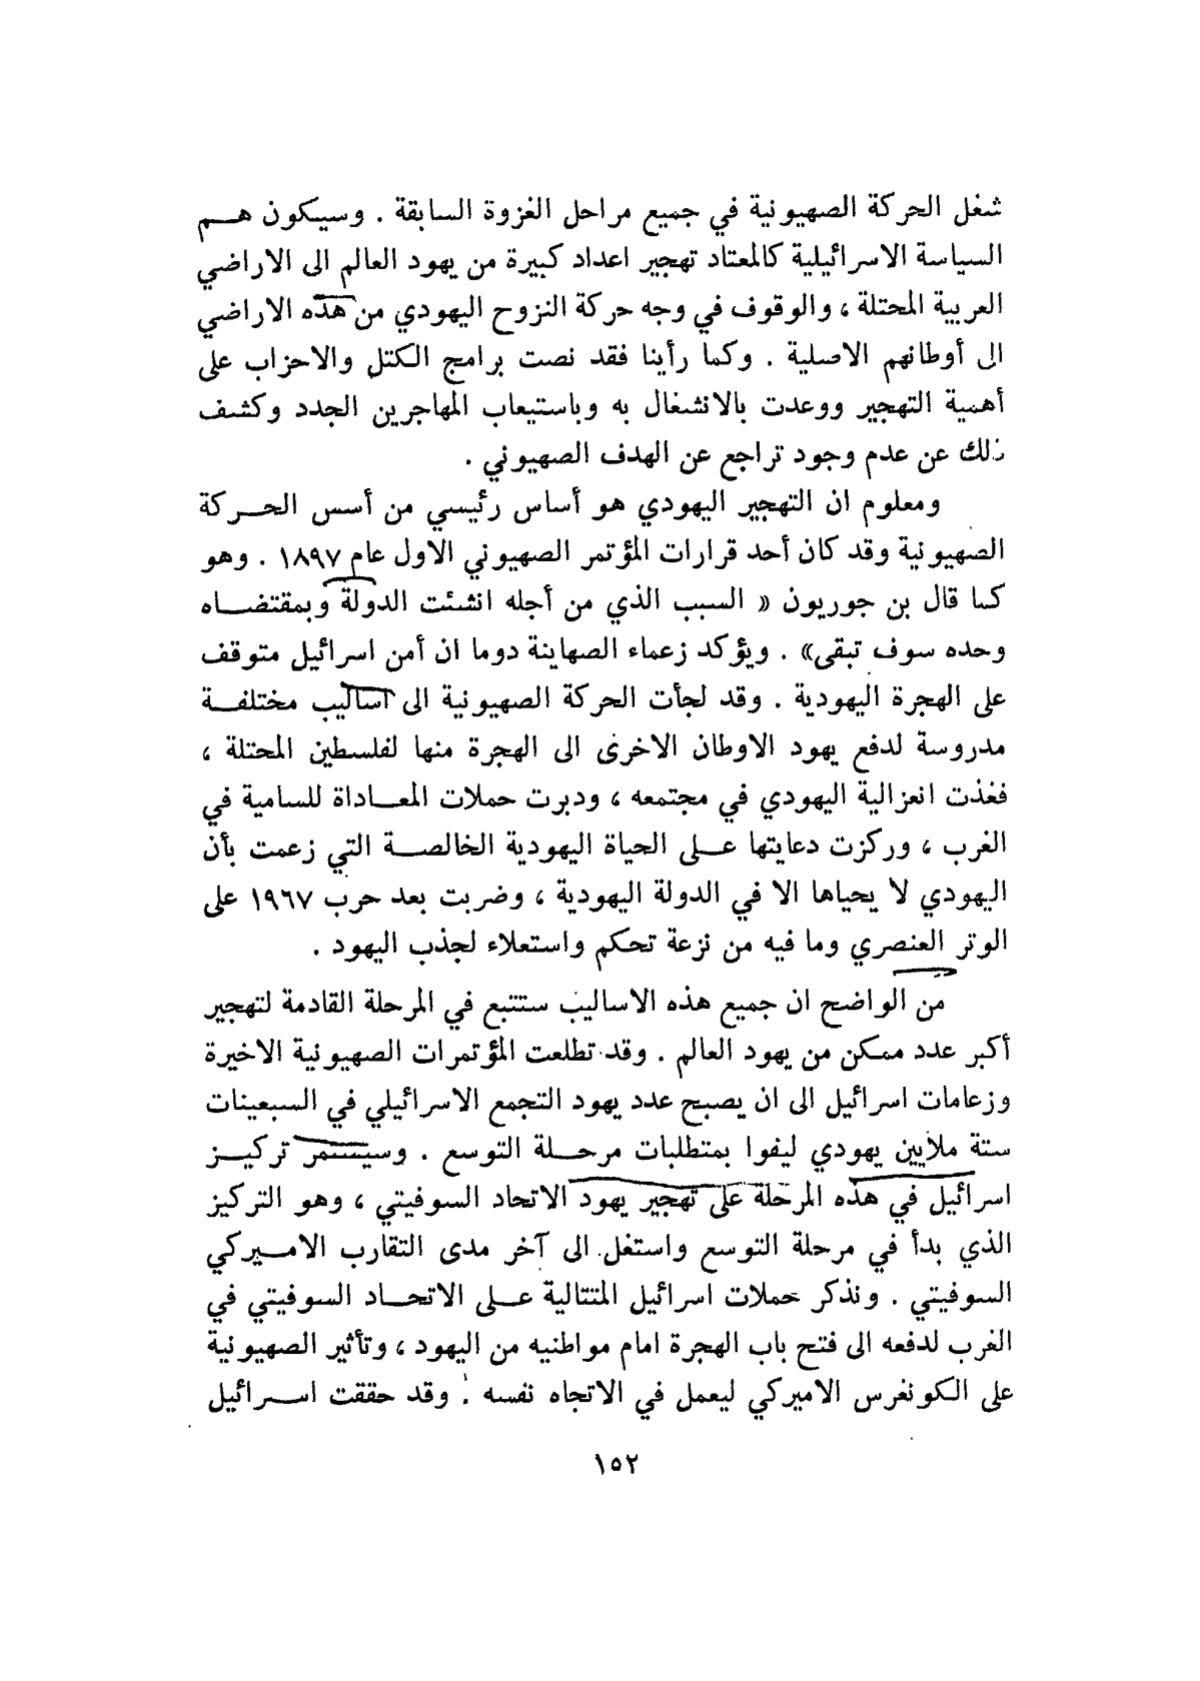 شغل الحركة الصهيونية في جميع مراحل الغزوة السابقة . وسيكون هـــم
السياسة الاسرائيلية كالمعتاد تهجير اعداد كبيرة من يهود العالم الى الاراضي
العربية المحتلة ، والوقوف في وجه حركة النزوح اليهودي من هذه الاراضي
الى أوطانهم الاصلية . وكما رأينا فقد نصت برامج الكتل والاحزاب على
أهمية التهجير ووعدت بالانشغال به وباستيعاب المهاجرين الجدد وكشف
ذلك عن عدم وجود تراجع عن الهدف الصهيوني .
ومعلوم ان التهجير اليهودي هو أساس رئيسي من أسس الحـــركة
الصهيونية وقد كان أحد قرارات المؤتمر الصهيوني الاول عام ١٨٩٧ . وهو
كما قال بن جوريون « السبب الذي من أجله انشئت الدولة وبمقتضـــاه
وحده سوف تبقى» . ويؤكد زعماء الصهاينة دوما ان أمن اسرائيل متوقف
على الهجرة اليهودية . وقد لجأت الحركة الصهيونية الى اساليب مختلفـــة
مدروسة لدفع يهود الاوطان الاخرى الى الهجرة منها لفلسطين المحتلة ،
فغذت انعزالية اليهودي في مجتمعه ، ودبرت حملات المعـــاداة للسامية في
الغرب ، وركزت دعايتها عـــلى الحياة اليهودية الخالصـــة التي زعمت بأن
اليهودي لا يحياها الا في الدولة اليهودية ، وضربت بعد حرب ١٩٦٧ على
الوتر العنصري وما فيه من نزعة تحكم واستعلاء لجذب اليهود .
من الواضح ان جميع هذه الاساليب ستتبع في المرحلة القادمة لتهجير
أكبر عدد ممكن من يهود العالم . وقد تطلعت المؤتمرات الصهيونية الاخيرة
وزعامات اسرائيل الى ان يصبح عدد يهود التجمع الاسرائيلي في السبعينات
ستة ملايين يهودي ليفوا بمتطلبات مرحـــلة التوسع . وسيستمر تركيـــز
اسرائيل في هذه المرحلة على تهجير يهود الاتحاد السوفيتي ، وهو التركيز
الذي بدأ في مرحلة التوسع واستغل الى آخر مدى التقارب الامـــيركي
السوفيتي . ونذكر حملات اسرائيل المتتالية عـــلى الاتحـــاد السوفيتي في
الغرب لدفعه الى فتح باب الهجرة امام مواطنيه من اليهود ، وتأثير الصهيونية
على الكونغرس الاميركي ليعمل في الاتجاه نفسه . وقد حققت اســـرائيل
١٥٢